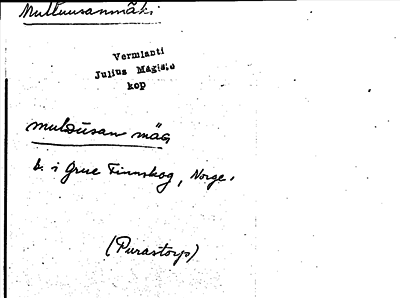 Multuusanmäki
Vermlanti
Julius Mägiste
kop
mulDūsan mäG
b. i Grue Finnskog, Norge.
(Purastorp)